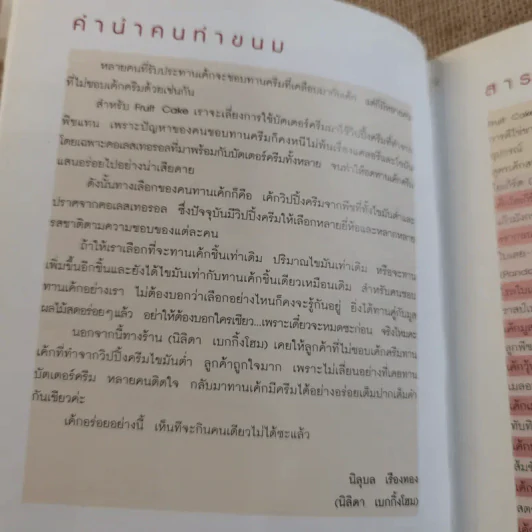 คำนำคนทำขนม
หลายคนที่รับประทานเค้กจะชอบทานครีมที่เคลือบมากับเค้ก แต่ก็มีหลายคน
ที่ไม่ชอบเค้กครีมด้วยเช่นกัน
สำหรับ Fruit Cake เราจะเลี่ยงการใช้บัตเตอร์ครีมมาใช้วิปปิ้งครีมที่ทำจาก
พืชแทน เพราะปัญหาของคนชอบทานครีมก็คงหนีไม่พ้นเรื่องแคลอรีและไขมัน
โดยเฉพาะคอเลสเทอรอลที่มาพร้อมกับบัตเตอร์ครีมทั้งหลาย จนทำให้อดทานเค้กครีม
แสนอร่อยไปอย่างน่าเสียดาย
ดังนั้นทางเลือกของคนทานเค้กก็คือ เค้กวิปปิ้งครีมจากพืชที่ทั้งไขมันต่ำและ
ปราศจากคอเลสเทอรอล ซึ่งปัจจุบันมีวิปปิ้งครีมให้เลือกหลายยี่ห้อและหลากหลาย
รสชาติตามความชอบของแต่ละคน
ถ้าให้เราเลือกที่จะทานเค้กชิ้นเท่าเดิม ปริมาณไขมันเท่าเดิม หรือจะทาน
เพิ่มขึ้นอีกชิ้นและยังได้ไขมันเท่ากับทานเค้กชิ้นเดียวเหมือนเดิม สำหรับคนชอบ
ทานเค้กอย่างเรา ไม่ต้องบอกว่าเลือกอย่างไหนก็คงจะรู้กันอยู่ ยิ่งได้ทานคู่กับมูส
ผลไม้สดอร่อยๆแล้ว อย่าให้ต้องบอกใครเชียว...เพราะเดี๋ยวจะหมดซะก่อน จริงไหมคะ
นอกจากนี้ทางร้าน (นิลิตา เบกกิ้งโฮม) เคยให้ลูกค้าที่ไม่ชอบเค้กครีมทาน
เค้กที่ทำจากวิปปิ้งครีมไขมันต่ำ ลูกค้าถูกใจมาก เพราะไม่เลี่ยนอย่างที่เคยทาน
บัตเตอร์ครีม หลายคนติดใจ กลับมาทานเค้กมีครีมได้อย่างอร่อยเต็มปากเต็มคำ
กันเชียวค่ะ
เค้กอร่อยอย่างนี้ เห็นทีจะกินคนเดียวไม่ได้ซะแล้ว
นิลุบล เรืองทอง
(นิลิตา เบกกิ้งโฮม)
สาร
Fruit Cake